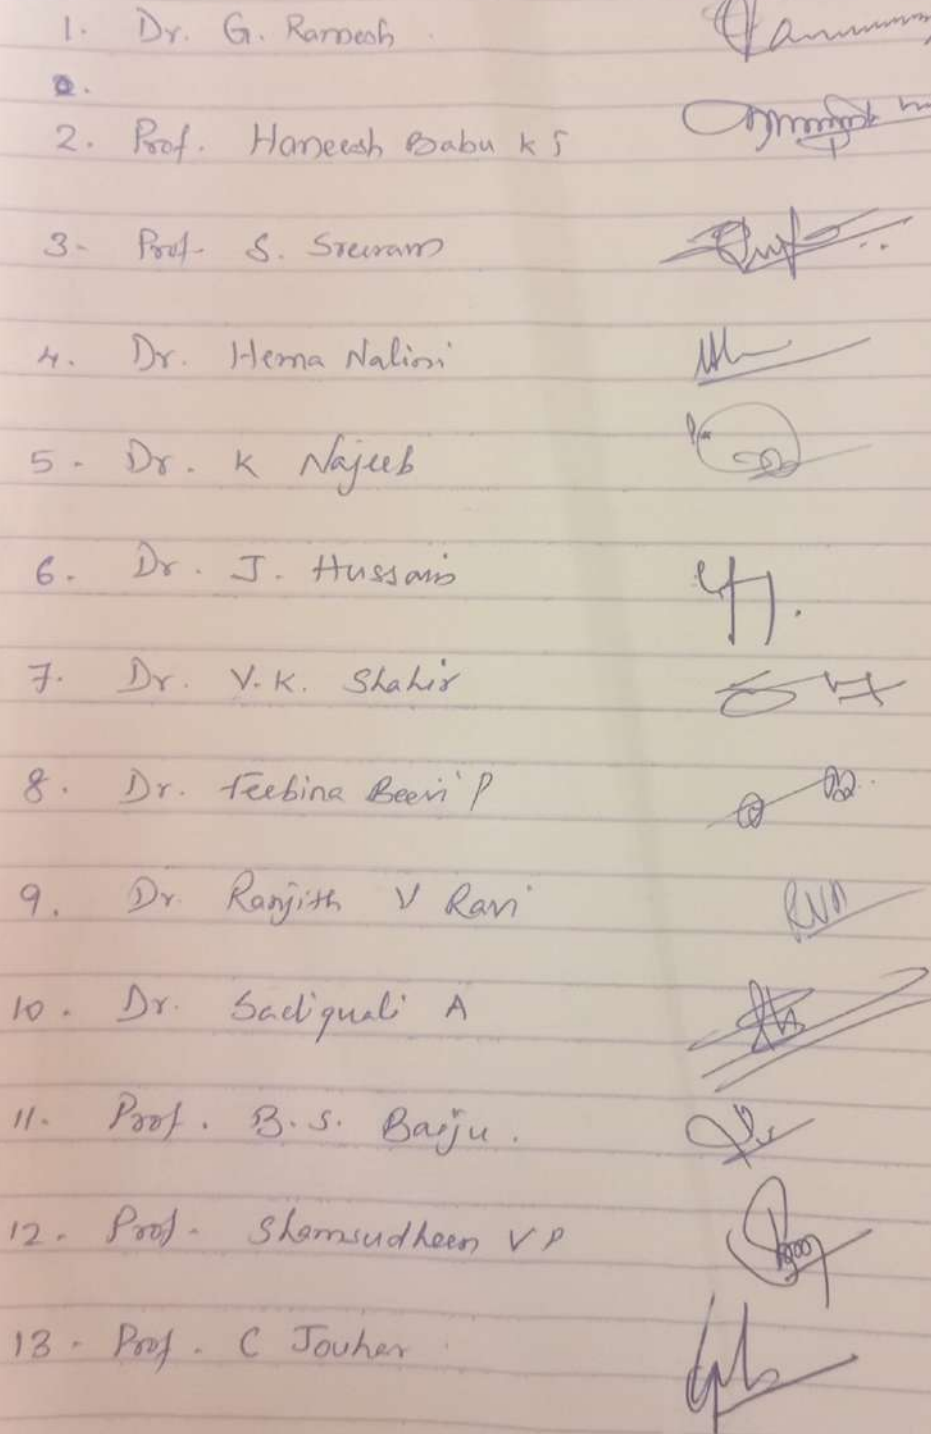 1. Dr. G. Ramesh
2. Prof. Haneesh Babu K S
3- Prof- S. Sreeram
4. Dr. Hema Nalini
5- Dr. K Najeeb
6. Dr. J. Hussain
7. Dr. V.K. Shahir
8. Dr. Feebina Beevi P
9. Dr. Ranjith V Ravi RVR
10. Dr. Sadiquali A
11. Prof. B.S. Baiju.
12. Prof- Shamsudheen VP
13- Prof. C Jouhar